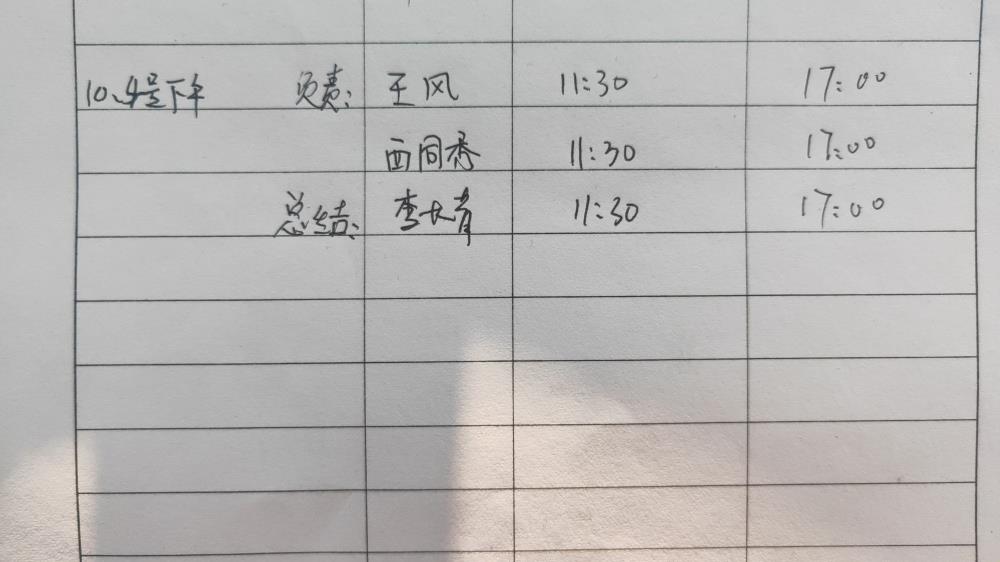 10.4号下午 负责: 王风 11:30 17:00
西同秀 11:30 17:00
总结: 李长青 11:30 17:00